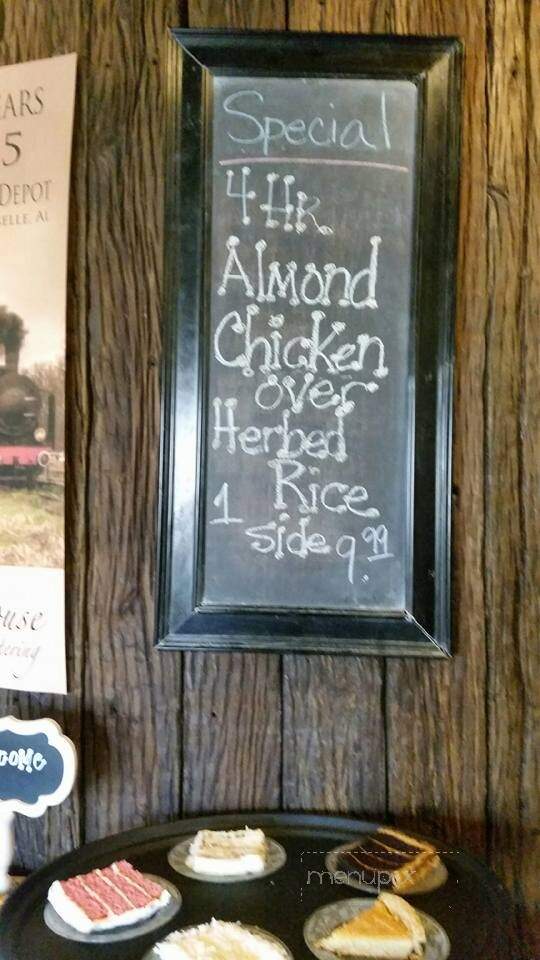 EARS
5
DEPOT
SELLE, AL
ouse
tering
COME
Special
4 HR
Almond
Chicken
over
Herbed
Rice
1 side 9.99
menupix